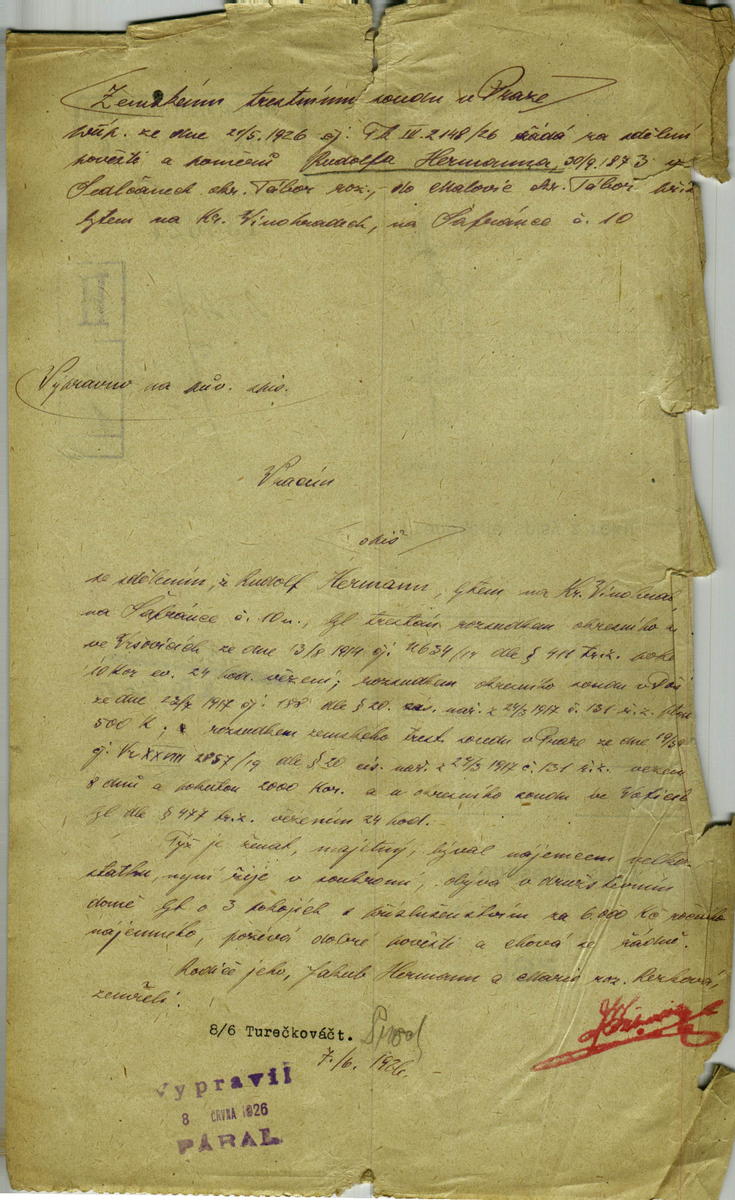 Zemskému trestnímu soudu v Praze
přip. ze dne 27/5. 1926 čj. Tk IV. 2148/26 žádá za sdělení
pověsti a poměrů Rudolfa Hermanna, 30/9. 1873 v
Sedlčanech okr. Tábor roz., do Malovic okr. Tábor přísl.
bytem na Kr. Vinohradech, na Šafránce č. 10
Vypraveno na pův. spis.
Vracím
opis
se sdělením, ž Rudolf Hermann, bytem na Kr. Vinohrad
na Šafránce č. 10n., byl trestán rozsudkem okresního s
ve Vršovicích ze dne 13/8 1914 čj. U 634/14 dle § 411 tr.z. poku
10 kor ev. 24 hod. vězení; rozsudkem okresního soudu v
ze dne 23/7 1917 čj. 188 dle § 20. cís. nař. z 24/3 1917 č. 131 ř.z.
500 K; rozsudkem zemského trest. soudu v Praze ze dne
čj. Vr XXVIII 2857/19 dle § 20 cís. nař. z 24/3 1917 č. 131 ř.z. vězen
8 dnů a pokutou 2000 Kor. a u okresního soudu ve
byl dle § 477 tr.z. vězením 24 hod.
Týž je ženat, majetný, býval nájemcem velko-
statku, nyní žije v soukromí, obývá v družstevním
domě byt o 3 pokojích s příslušenstvím za 6.000 Kč ročního
nájemného, požívá dobré pověsti a chová se řádně.
Rodiče jeho, Jakub Hermann a Marie roz.
zemřeli.
8/6 Turečkováčt.
7./6. 1926.
Vypravil
8 ČRVNA 1926
PÁRAL